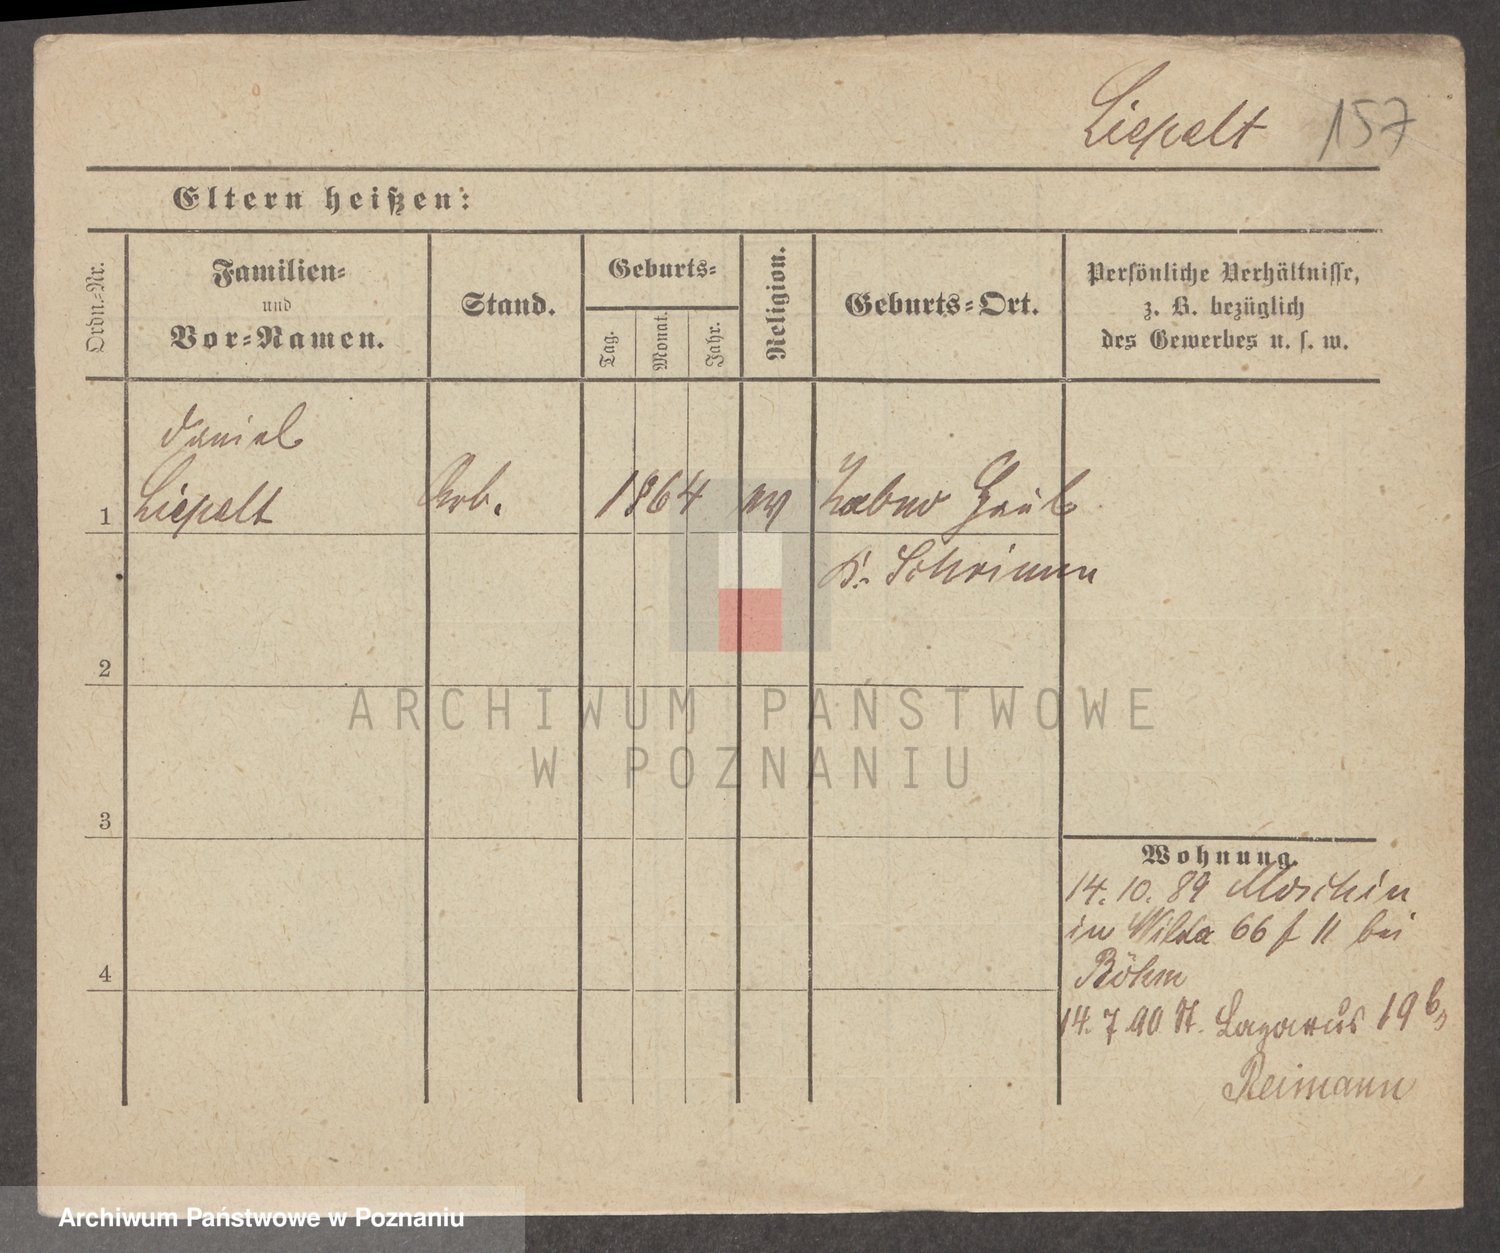 Liepelt 157
Eltern heißen:
Ordn.-Nr.
Familien-
und
Vor-Namen.
Stand.
Geburts-
Tag.
Monat.
Jahr.
Religion.
Geburts-Ort.
Persönliche Verhältnisse,
z. B. bezüglich
des Gewerbes u. s. w.
Daniel
1 Liepelt Arb. 1864 ev Zabno Haul
K. Schrimm
2
ARCHIWUM PAŃSTWOWE
W POZNANIU
3
Wohnung.
14. 10. 89 Moschin
in Wilda 66 f II bei
Böhm
4
14. 7. 90 St. Lazarus 19 b,
Reimann
Archiwum Państwowe w Poznaniu